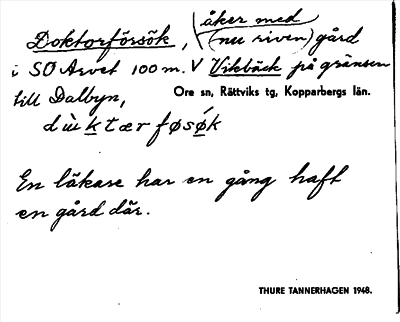 åker med
Doktorförsök, (nu riven) gård
i SO Arvet 100 m. V Vikbäck på gränsen
till Dalbyn, Ore sn, Rättviks tg, Kopparbergs län.
dὼktærføsǿk
En läkare har en gång haft
en gård där.
THURE TANNERHAGEN 1948.